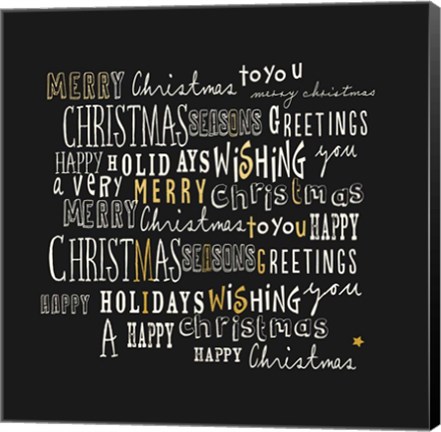 MERRY Christmas to you
merry christmas
CHRISTMAS SEASONS GREETINGS
HAPPY HOLIDAYS WiSHiNG you
a very MERRY Christmas
MERRY Christmas to you HAPPY
CHRISTMAS SEASONS GREETINGS
HAPPY HOLIDAYS WiSHING you
A HAPPY christmas
HAPPY Christmas